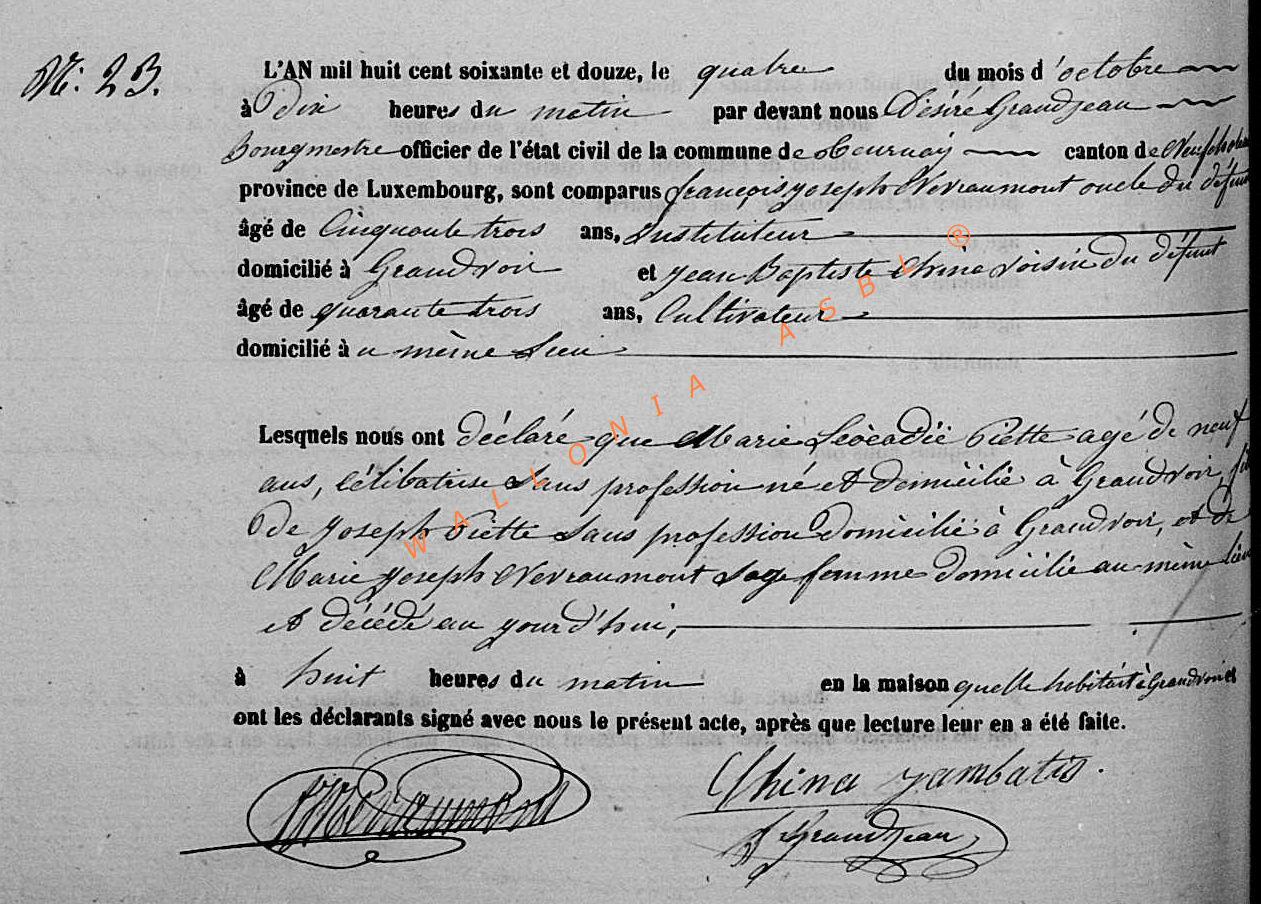 N: 23.
L'AN mil huit cent soixante et douze, le quatre du mois d'octobre
à Dix heures du matin par devant nous Désiré Grandjean
Bourgmestre officier de l'état civil de la commune de Tournay canton de Neufchateau
province de Luxembourg, sont comparus françois joseph Nevraumont oncle du défunt
âgé de Cinquante trois ans, Instituteur
domicilié à Grandvoir et jean Baptiste China voisin du défunt
âgé de quarante trois ans, Cultivateur
domicilié à u même Lieu
Lesquels nous ont déclaré que Marie Léocadie Piette agé de neuf
ans, célibataire sans profession né et domicilié à Grandvoir,
De joseph Piette sans profession domicilié à Grandvoir, et de
Marie joseph Nevraumont sage femme domicilié au même lieu
et décédé au yourd'hui,
à huit heures du matin en la maison quelle habitait à Grandvoir et
ont les déclarants signé avec nous le présent acte, après que lecture leur en a été faite.
Nevraumont China jambatis.
D Grandjean
WALLONIA ASBL ®